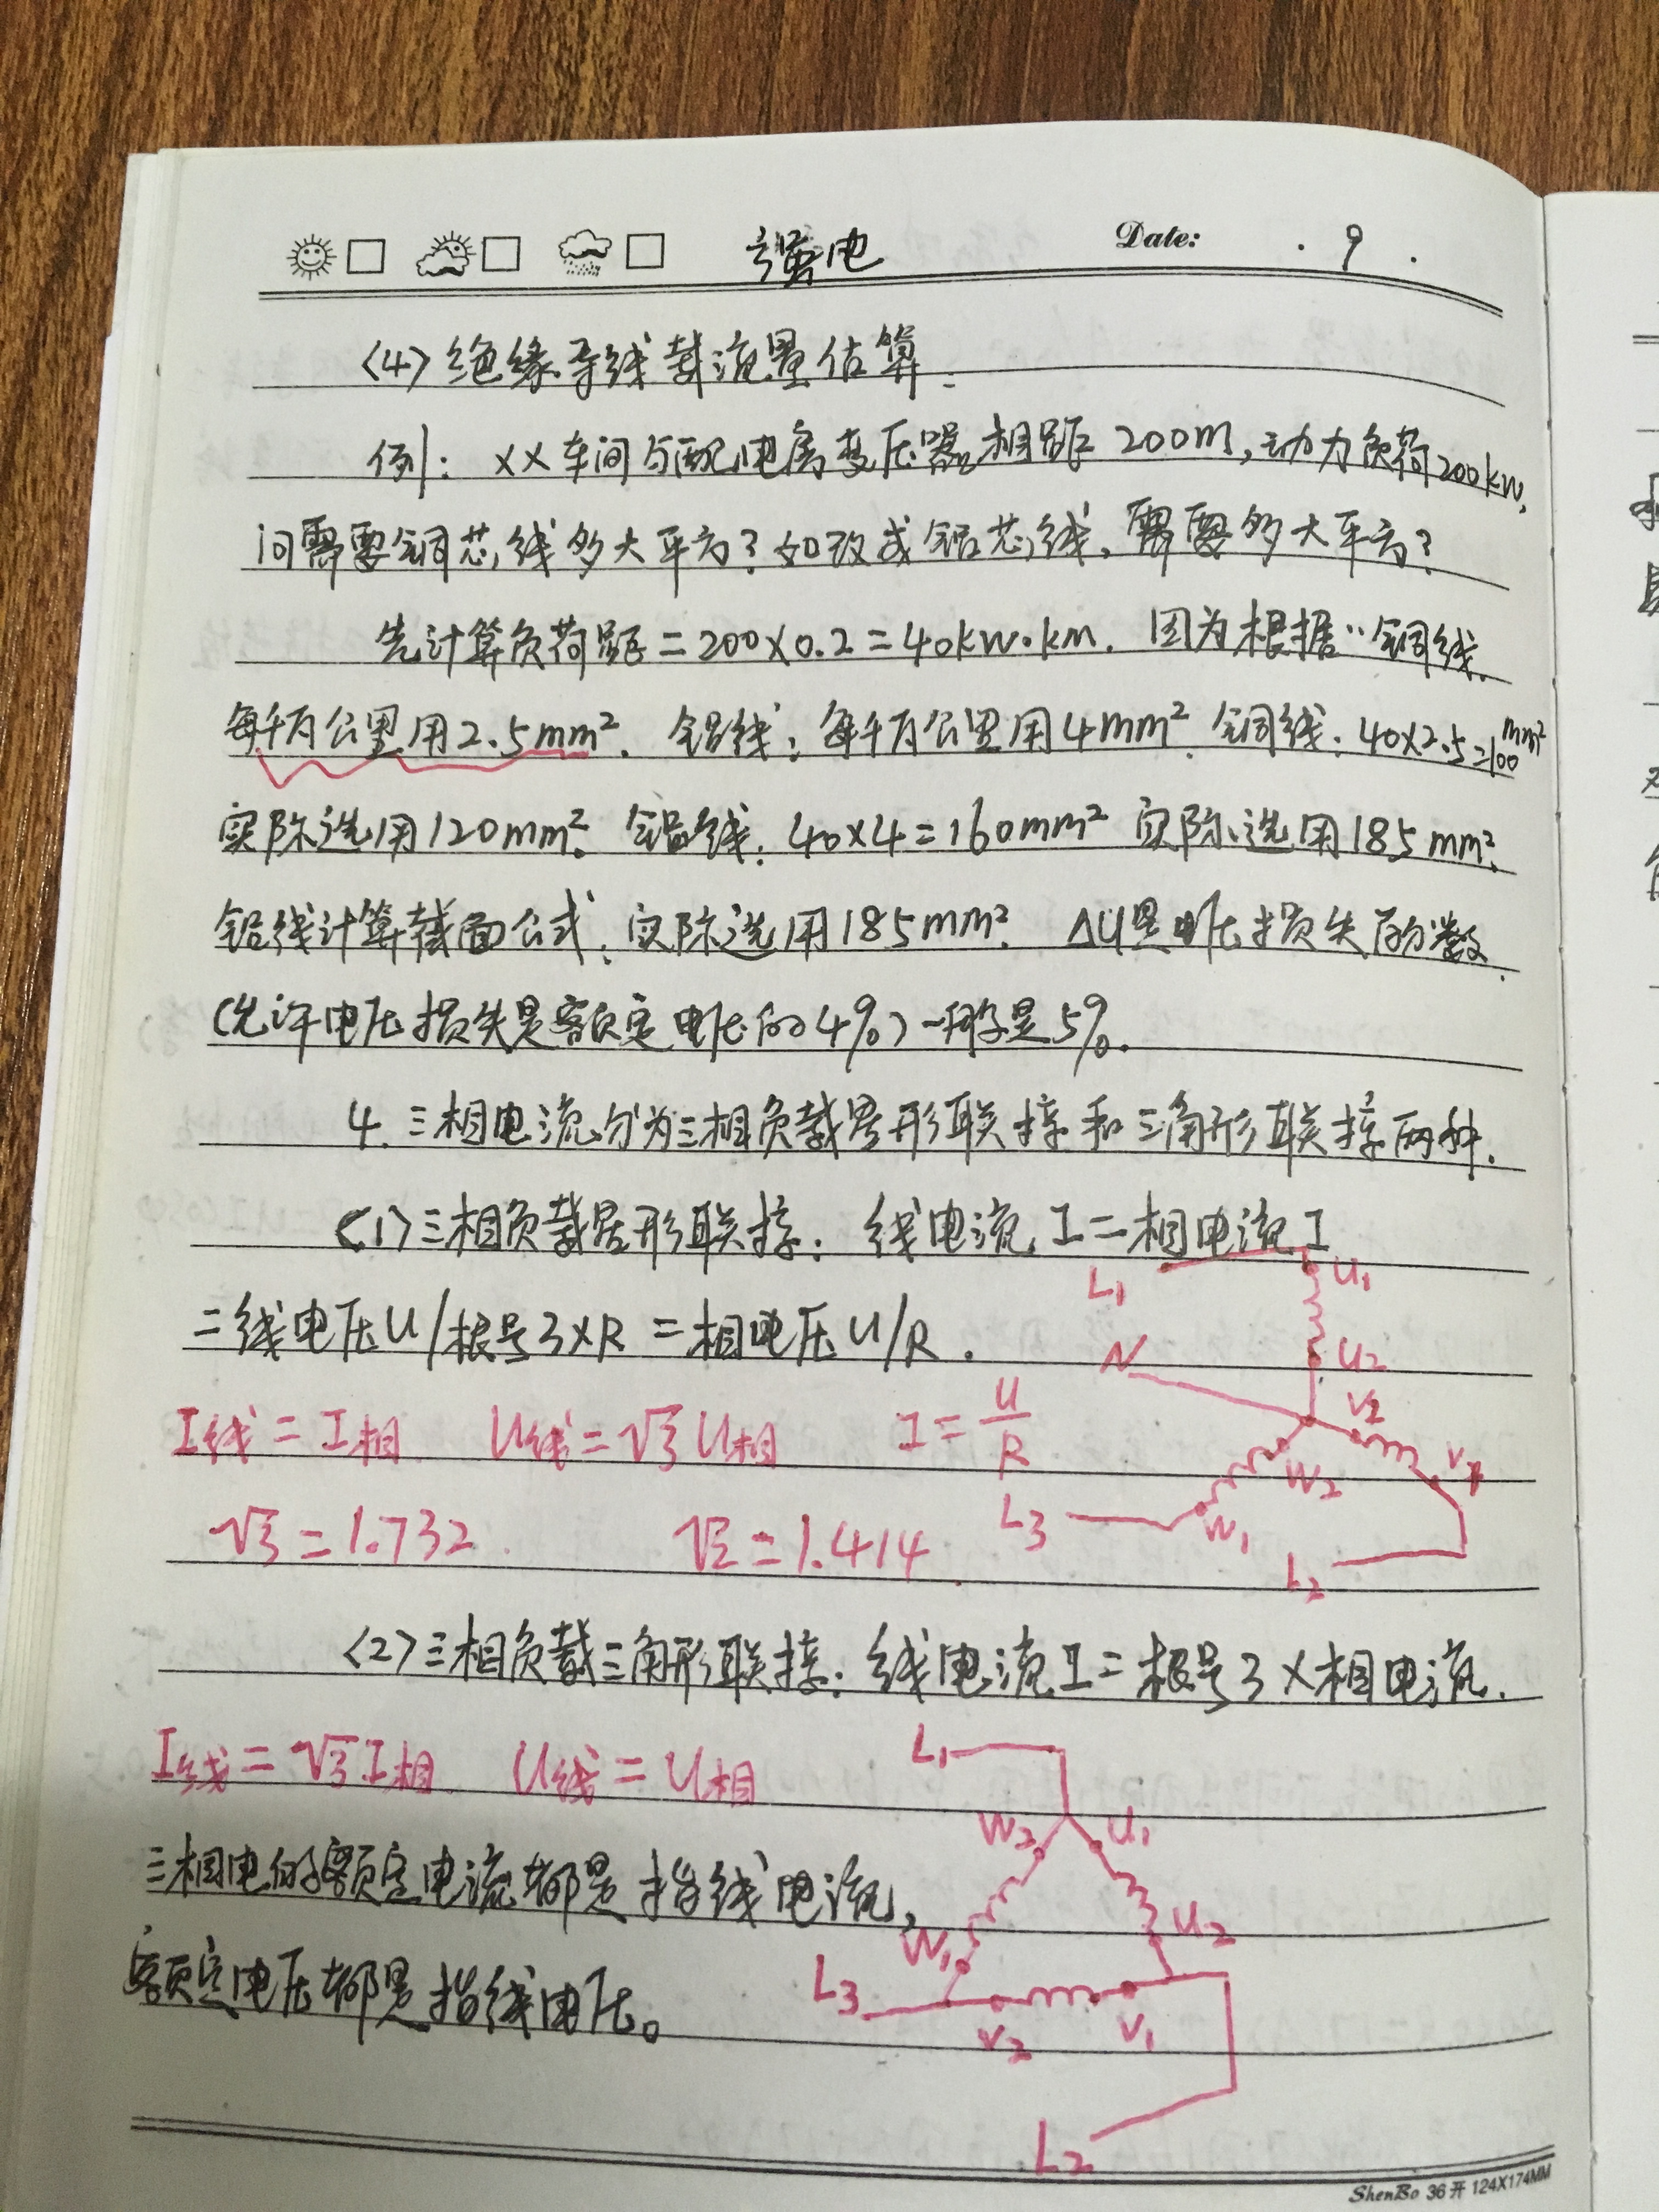 强电 Date: . 9 .
<4>绝缘导线载流量估算:
例: XX车间与配电房变压器相距200m,动力负荷200kw,
问需要铜芯线多大平方?如改成铝芯线,需要多大平方?
先计算负荷距=200×0.2=40kw·km. 因为根据"铜线
每千瓦公里用2.5mm². 铝线:每千瓦公里用4mm². 铜线:40×2.5=100mm²
实际选用120mm². 铝线:40×4=160mm² 实际选用185mm².
铝线计算截面公式:实际选用185mm². ΔU是电压损失百分数.
(允许电压损失是额定电压的4%)一般是5%.
4.三相电流分为三相负载星形联接和三角形联接两种.
<1>三相负载星形联接:线电流I=相电流I
L₁ U₁
=线电压U/根号3×R=相电压U/R.
N U₂
I线=I相 U线=√3U相 I=U/R
V₂ W₂ V₁
√3=1.732. √2=1.414.
L₃ W₁ L₂
<2>三相负载三角形联接:线电流I=根号3×相电流.
I线=√3I相 U线=U相
L₁
W₂ U₁
三相电的额定电流都是指线电流,
W₁ U₂
额定电压都是指线电压。
L₃ V₂ V₁
L₂
ShenBo 36开 124X174MM